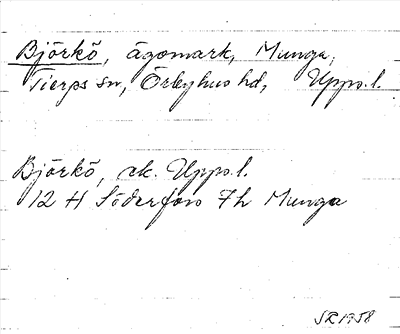 Björkö, ägomark, Munga,
Tierps sn, Örbyhus hd, Upps.l.
Björkö, ek. Upps.l.
12 H Söderfors 7h Munga
SR 1958